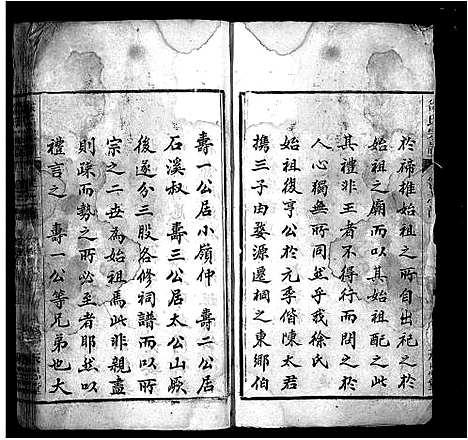 於禘推始祖之所自出祀之於
始祖之廟而以其始祖配之此
其禮非王者不得行而開
人心獨無所同然乎我徐氏
始祖復亨公於元季偕陳太君
携三子由婺源遷桐之東鄉伯
壽一公居小嶺仲 壽二公居
石溪叔 壽三公居太公山厥
後遂分三股各修祠譜而以所
宗之二世為始祖焉此非親盡
則疎而勢之所必至者耶然以
禮言之 壽一公等兄弟也大